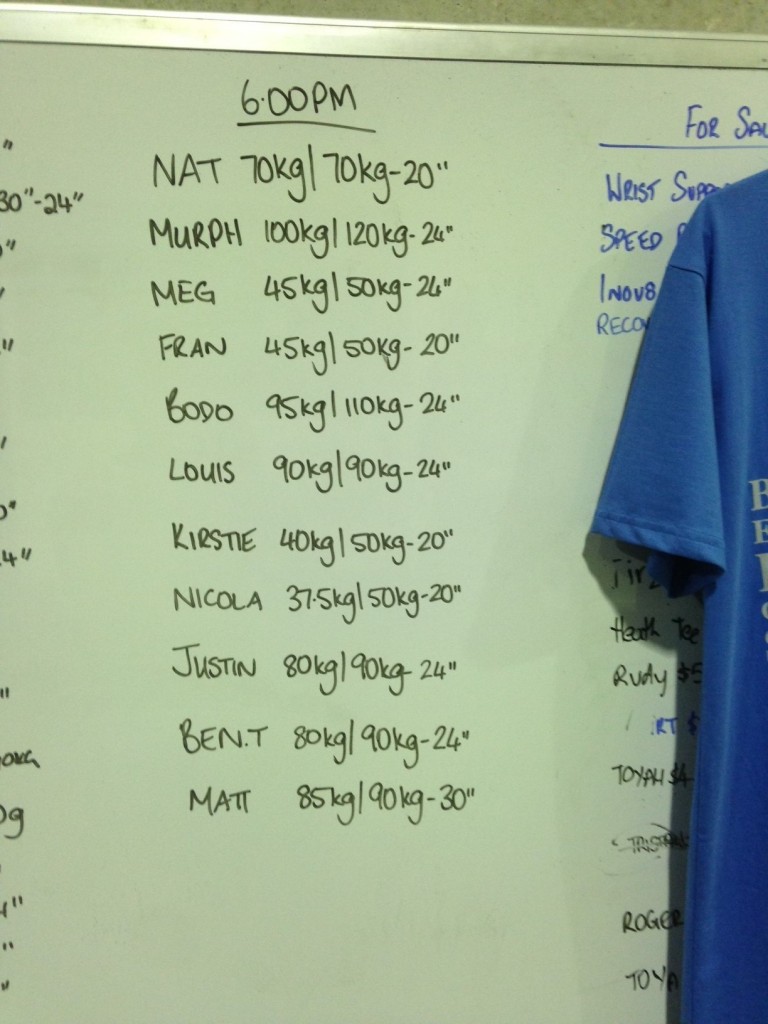 6:00PM
NAT 70kg/70kg-20"
MURPH 100kg/120kg-24"
MEG 45kg/50kg-24"
FRAN 45kg/50kg-20"
BODO 95kg/110kg-24"
LOUIS 90kg/90kg-24"
KIRSTIE 40kg/50kg-20"
NICOLA 37.5kg/50kg-20"
JUSTIN 80kg/90kg-24"
BEN.T 80kg/90kg-24"
MATT 85kg/90kg-30"
30"-24"
FOR
WRIST
SPEED
INOV8
Heath Tee
RUDY $5
TOYAH $4
ROGER
TOYA